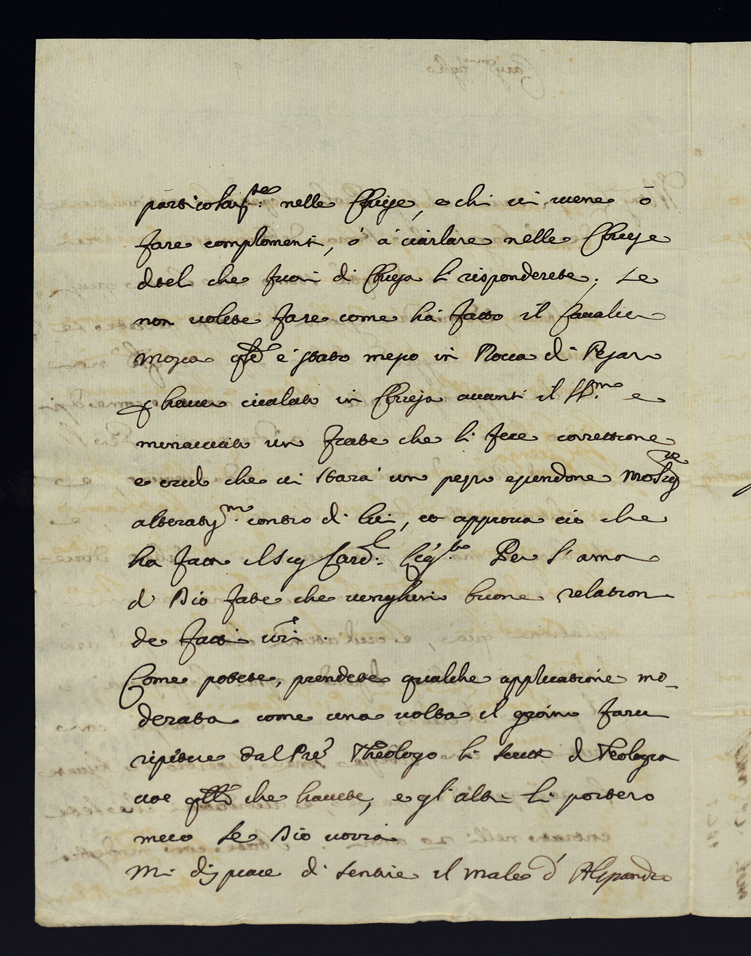 particolarm.te nelle Chiese, e chi vi viene o
fare complomenti, ò à ciarlare nelle Chiese
ditel che fuori di Chiesa li risponderete; Se
non volete fare come hà fatto il Cavalier
Mosca qle è stato messo in Rocca di Pesaro
p haver cicalato in Chiesa avanti il SS.mo e
minacciato un frate che li fece correttione
e credo che vi starà un pezzo essendone Mons.re
alteratiss.mo contro di lui, et approva ciò che
ha fatto il Sig Card.l Leg.to Per l'amor
d Dio fate che venghino buone relationi
de fatti vri.
Come potete, prendete qualche applicatione mo-
derata come una volta il giorno farvi
ripetere dal Pre Theologo li scritti d Teologia
cioe qlli che havete, e gl'altri li porterò
meco se Dio vorrà
Mi dispiace di sentire il male d'Alessandro